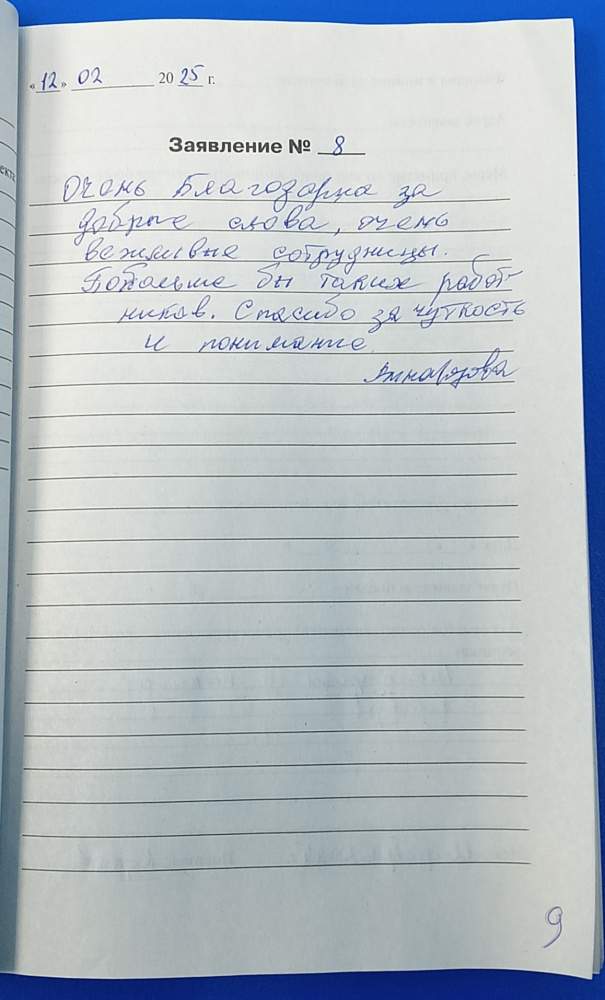 «12» 02 2025 г.
Заявление № 8
Очень благодарна за
добрые слова, очень
вежливые сотрудницы.
Побольше бы таких работ-
ников. Спасибо за чуткость
и понимание.
9